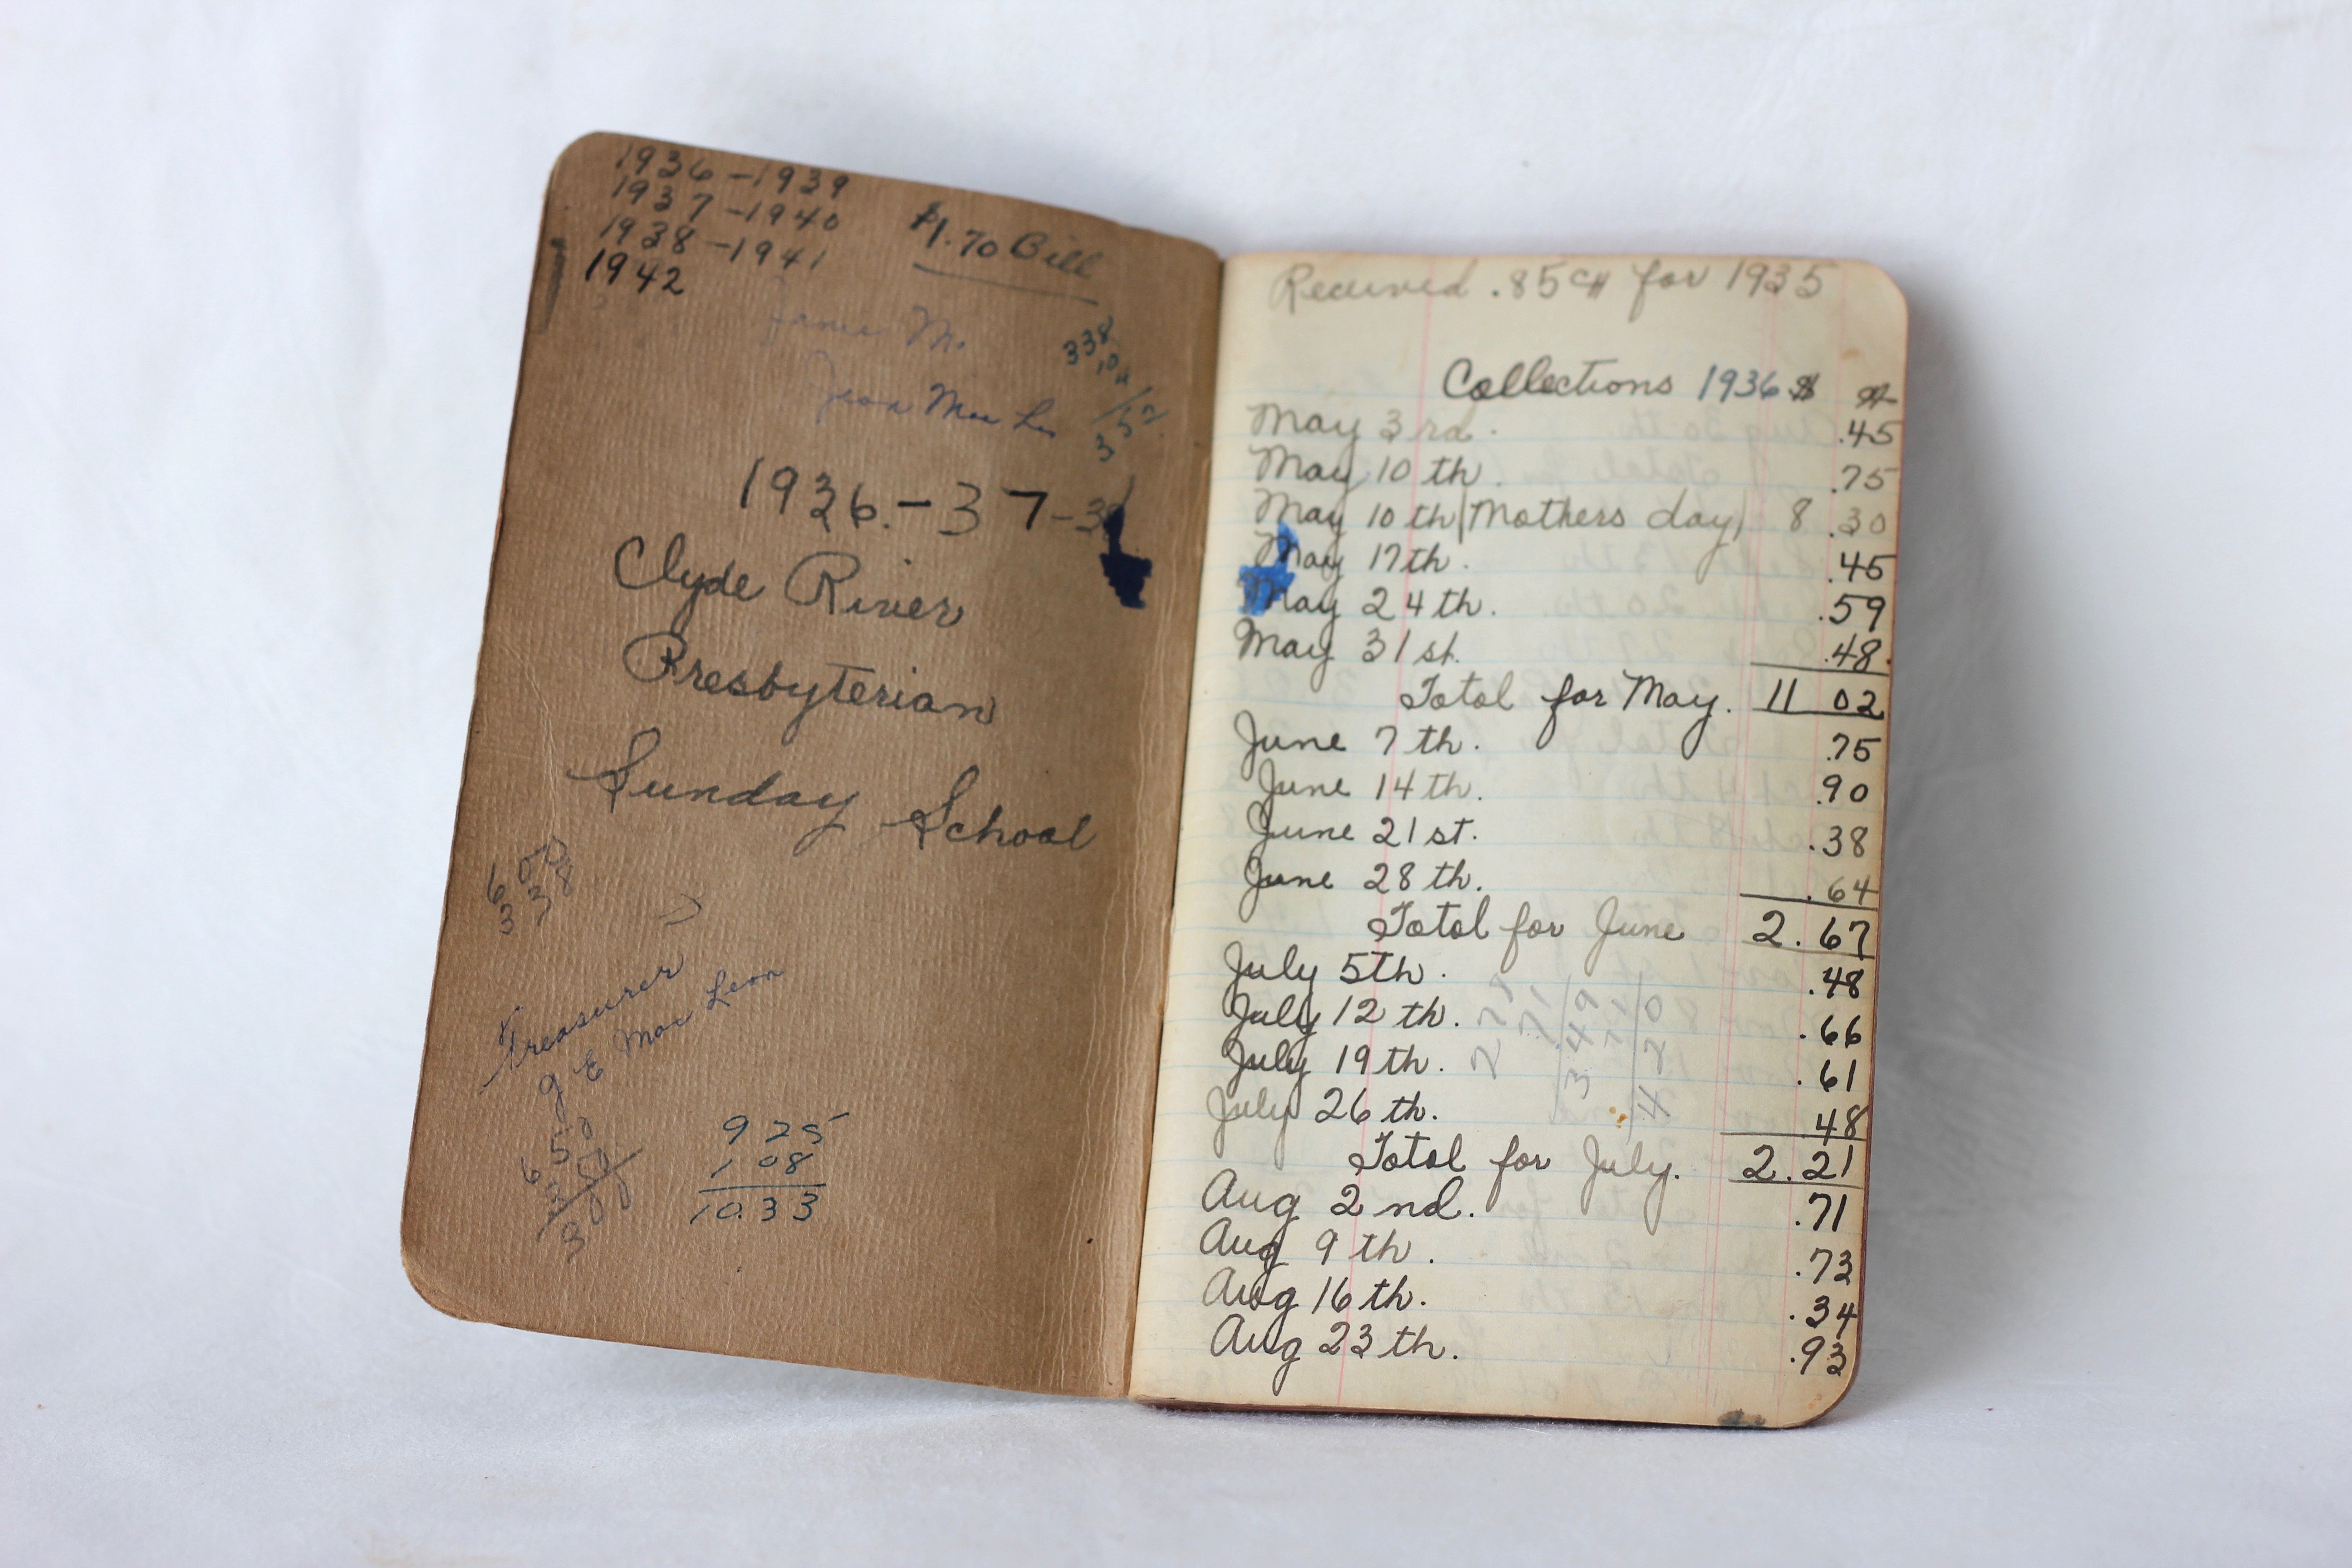 1936-1939
1937-1940
1938-1941
1942
$1.70 Bill
Janie M.
Jean Mac L
338
352
1936.-37-38
Clyde River
Presbyterian
Sunday School
338
Treasurer
J E MacLean
650
925
1 08
10.33
Received .85¢ for 1935
Collections 1936 $ ¢
May 3rd. .45
May 10th. .75
May 10th (Mothers day) 8 .30
May 17th. .45
May 24th. .59
May 31st. .48
Total for May. 11 02
June 7th. .75
June 14th. .90
June 21st. .38
June 28th. .64
Total for June 2.67
July 5th. .48
July 12th. .66
July 19th. .61
July 26th. .48
278
71
349
71
420
Total for July. 2.21
Aug 2nd. .71
Aug 9th. .73
Aug 16th. .34
Aug 23th. .93